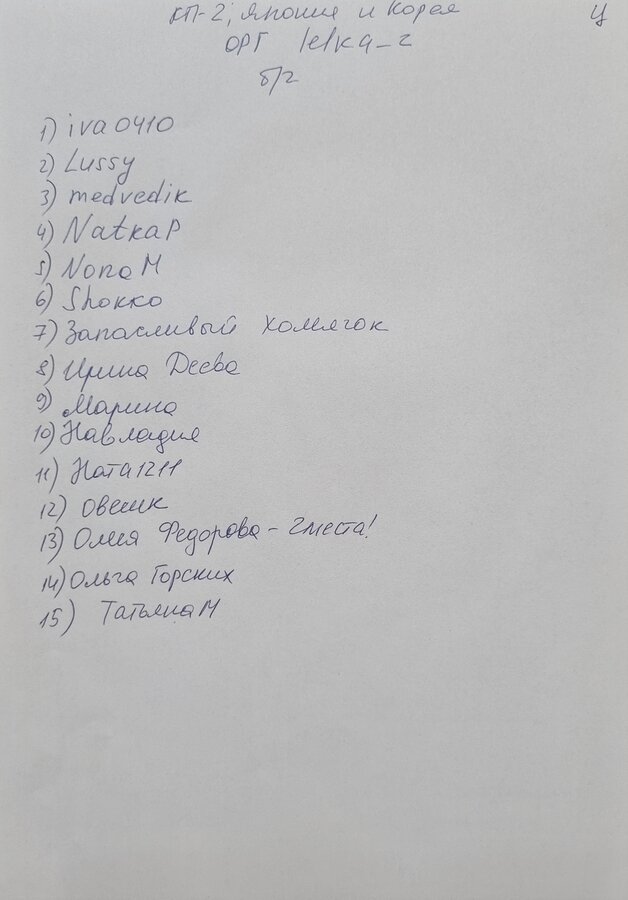 КП-2, Япония и Корея Ц
ОРГ lelka_2
б/г
1) iva0410
2) Lussy
3) medvedik
4) NatkaP
5) NonaM
6) Shokko
7) Запасливый хомячок
8) Ирина Деева
9) Марина
10) Навладия
11) Ната1211
12) овешк
13) Олия Федорова - 2 места!
14) Ольга Горских
15) ТатьянаМ